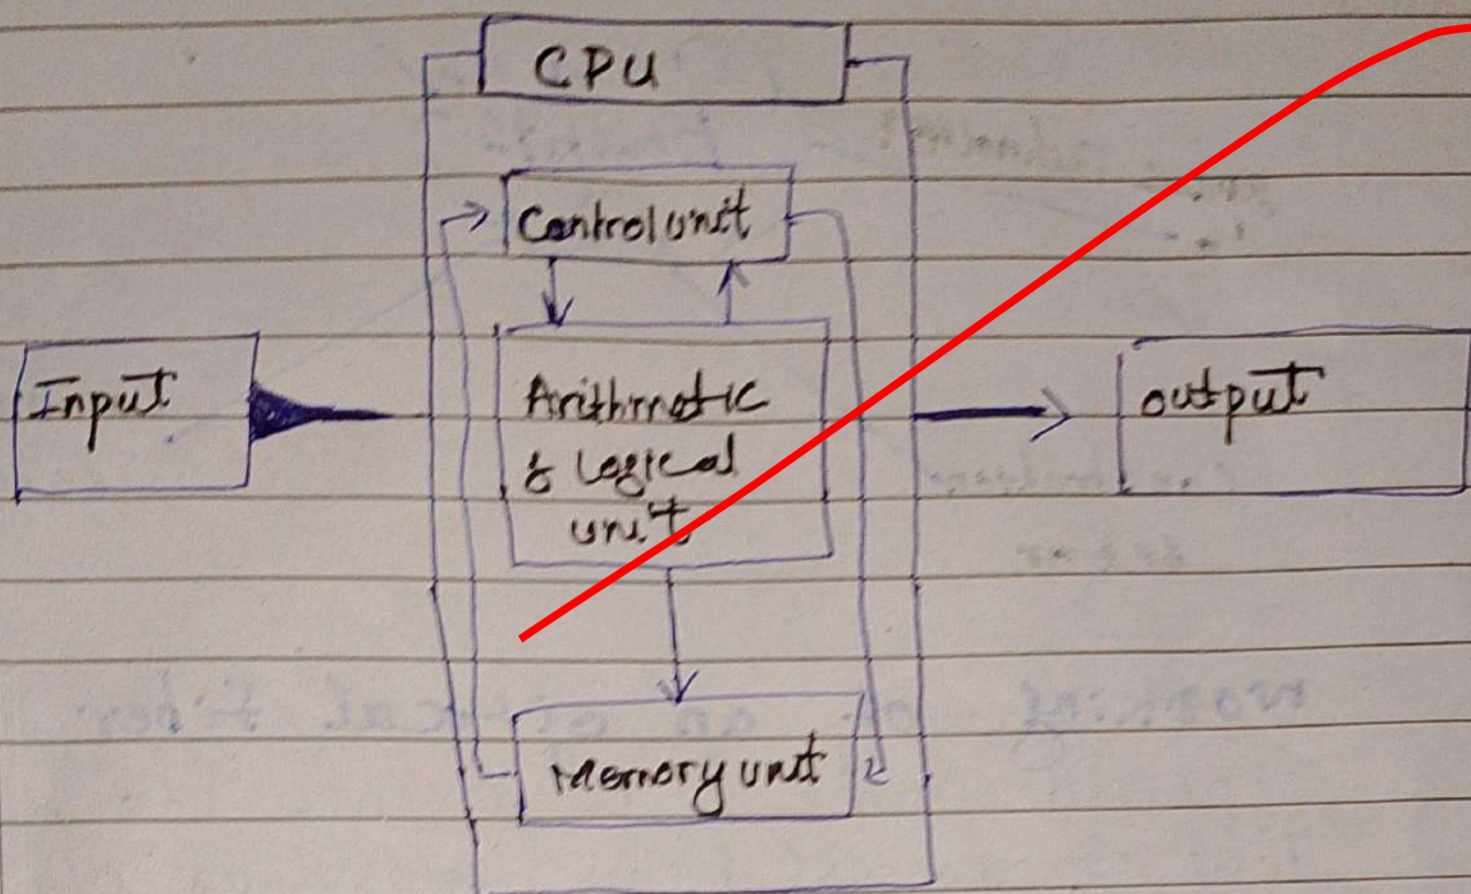 CPU
Control unit
Input
Arithmatic
& Logical
unit
output
Memory unit